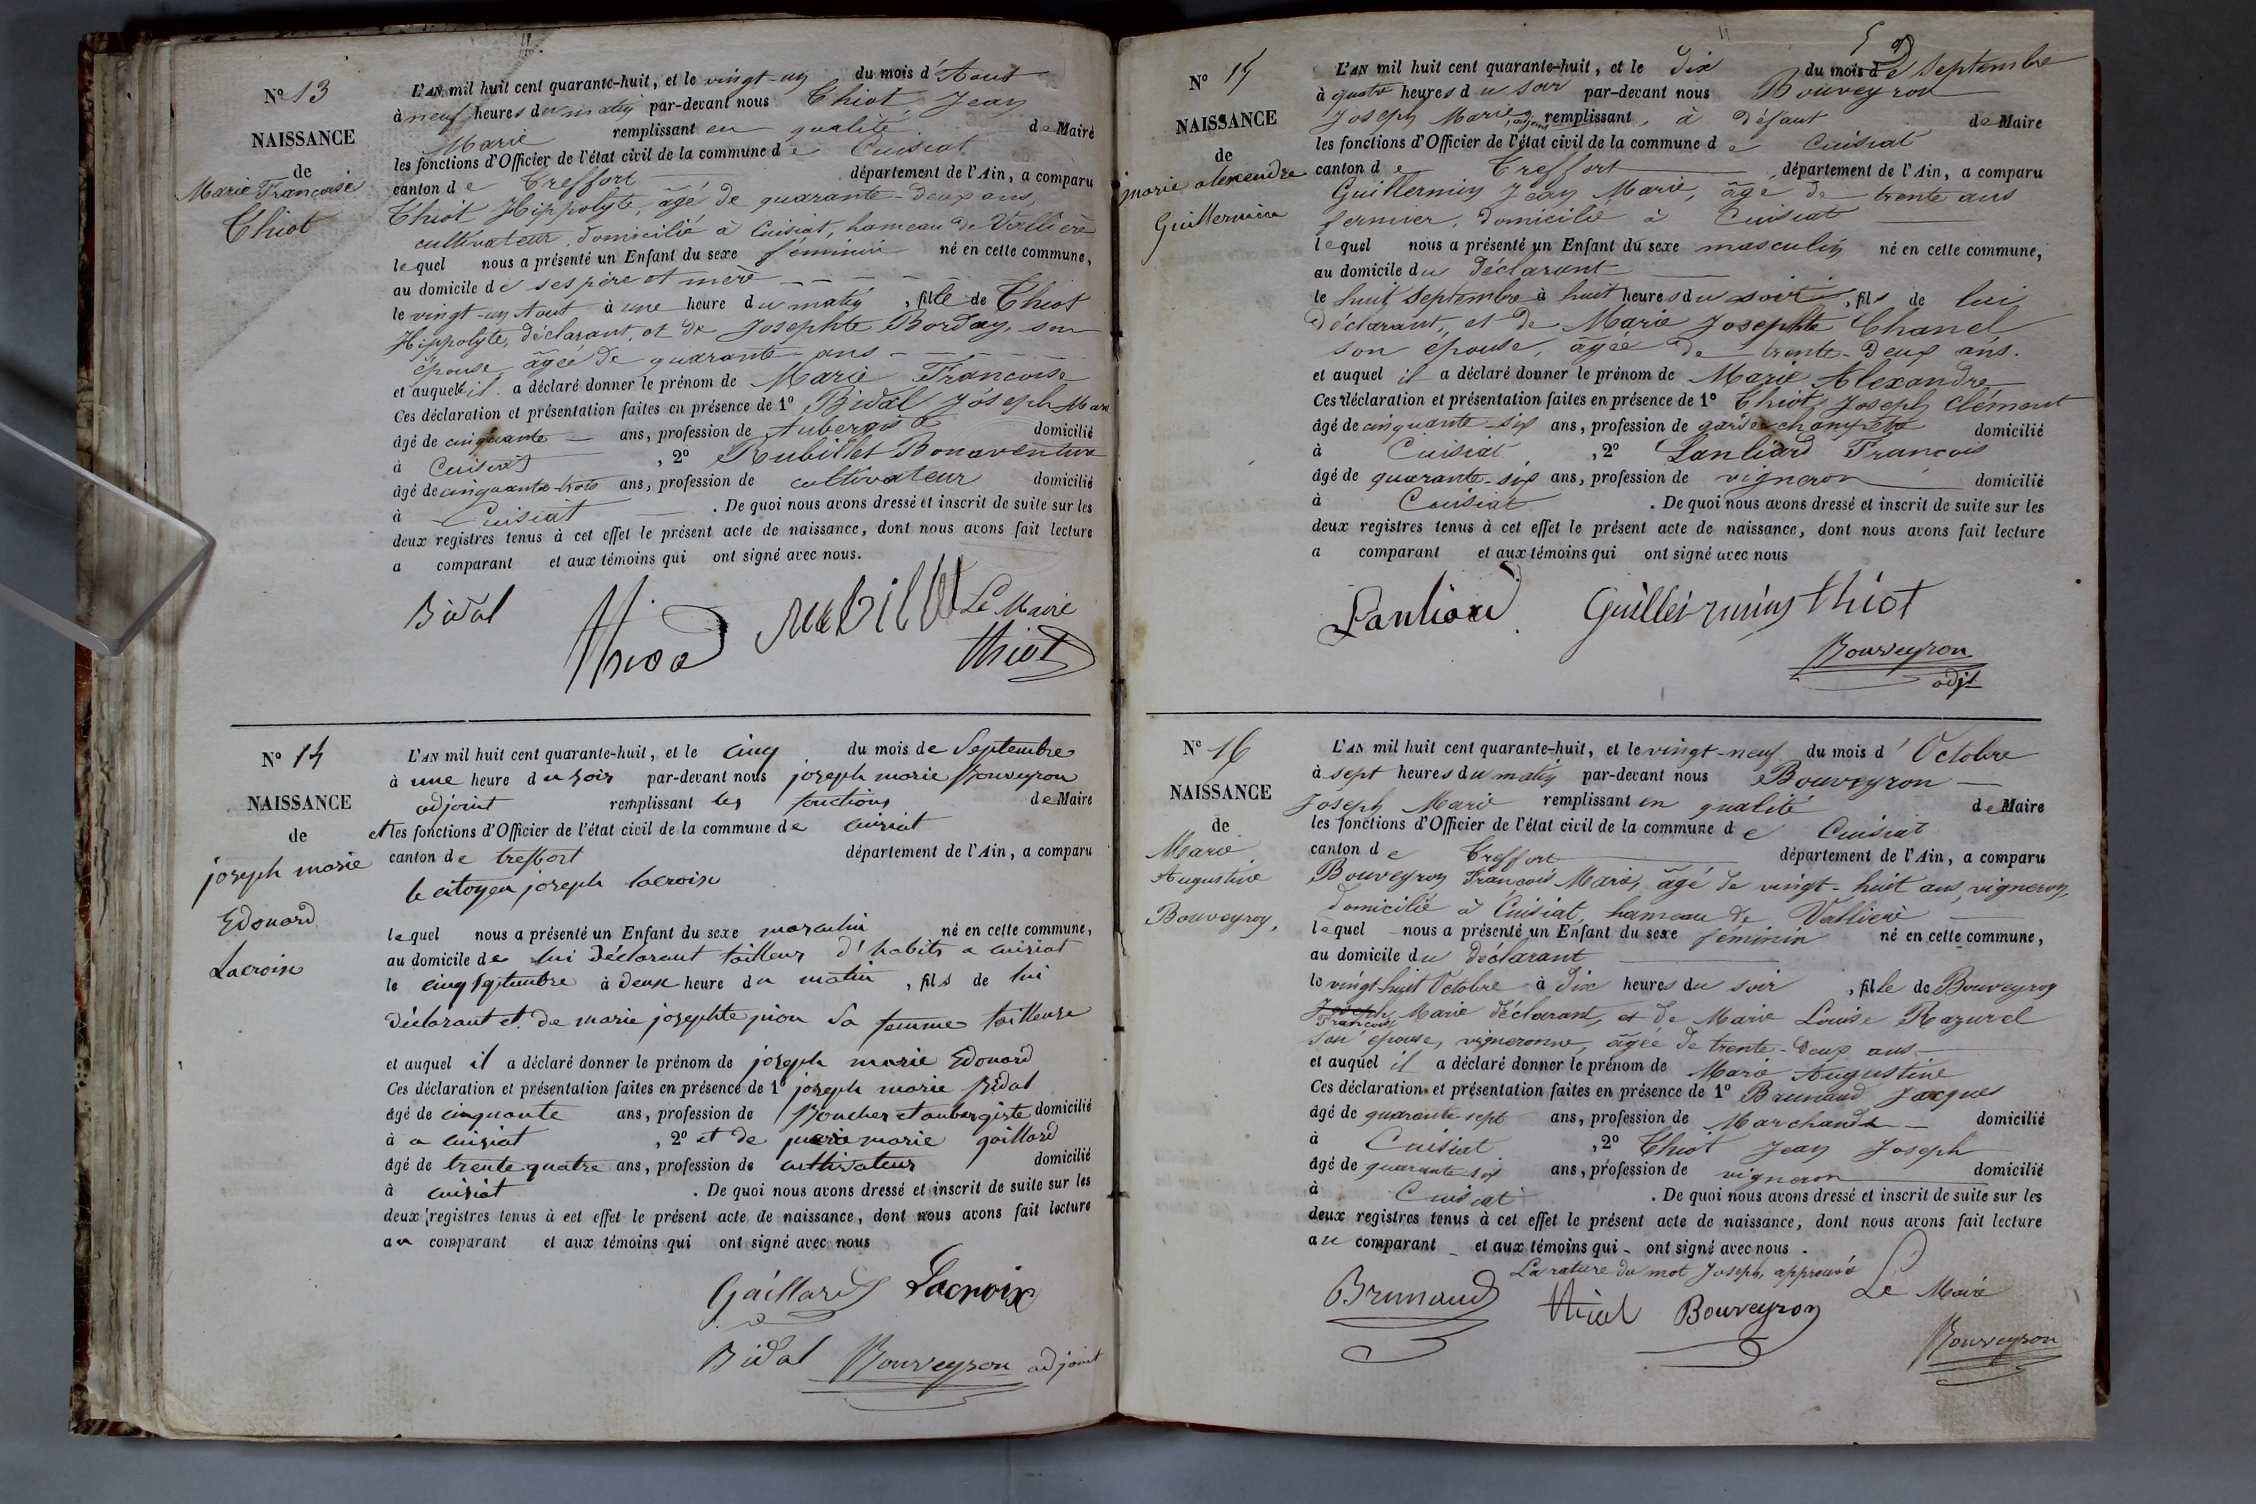 N° 13
NAISSANCE
de
Marie Françoise
Thiot
L'AN mil huit cent quarante-huit, et le vingt-un du mois d'Aout
à neuf heures du matin par-devant nous Thiot, Jean
Marie remplissant en qualité de Maire
les fonctions d'Officier de l'état civil de la commune de Cuisiat
canton de Treffort département de l'Ain, a comparu
Thiot Hippolyte, âgé de quarante-deux ans,
cultivateur, domicilié à Cuisiat, hameau de Vallière
lequel nous a présenté un Enfant du sexe féminin né en cette commune,
au domicile de ses père et mère
le vingt-un Aout à une heure du matin, fille de Thiot
Hippolyte, déclarant, et de Josephte Borday, son
épouse, âgée de quarante ans
et auquel il a déclaré donner le prénom de Marie Françoise
Ces déclaration et présentation faites en présence de 1° Bidal Joseph Marie
âgé de cinquante ans, profession de Aubergiste domicilié
à Cuisiat, 2° Rubillet Bonaventure
âgé de cinquante-trois ans, profession de cultivateur domicilié
à Cuisiat. De quoi nous avons dressé et inscrit de suite sur les
deux registres tenus à cet effet le présent acte de naissance, dont nous avons fait lecture
a comparant et aux témoins qui ont signé avec nous.
Bidal Thiot Rubillet Le Maire
Thiot
N° 14
NAISSANCE
de
joseph marie
Edouard
Lacroix
L'AN mil huit cent quarante-huit, et le cinq du mois de Septembre
à une heure du soir par-devant nous joseph marie Bouveyron
adjoint remplissant les fonctions de Maire
et les fonctions d'Officier de l'état civil de la commune de cuisiat
canton de treffort département de l'Ain, a comparu
le citoyen joseph lacroix
lequel nous a présenté un Enfant du sexe masculin né en cette commune,
au domicile de lui déclarant tailleur d'habits a cuisiat
le cinq septembre à deux heure du matin, fils de lui
déclarant et de marie josephte pion sa femme tailleuse
et auquel il a déclaré donner le prénom de joseph marie Edouard
Ces déclaration et présentation faites en présence de 1° joseph marie Bidal
âgé de cinquante ans, profession de Boucher et aubergiste domicilié
à a cuisiat, 2° et de marie gaillard
âgé de trente quatre ans, profession de cultivateur domicilié
à cuisiat. De quoi nous avons dressé et inscrit de suite sur les
deux registres tenus à cet effet le présent acte de naissance, dont nous avons fait lecture
au comparant et aux témoins qui ont signé avec nous
Gaillard Lacroix
Bidal Bouveyron adjoint
5
N° 15
NAISSANCE
de
marie alexandre
Guillermin
L'AN mil huit cent quarante-huit, et le dix du mois de Septembre
à quatre heures du soir par-devant nous Bouveyron
Joseph Marie, adjoint remplissant, à défaut de Maire
les fonctions d'Officier de l'état civil de la commune de Cuisiat
canton de Treffort département de l'Ain, a comparu
Guillermin Jean Marie, âgé de trente ans
fermier, domicilié à Cuisiat
lequel nous a présenté un Enfant du sexe masculin né en cette commune,
au domicile du déclarant
le huit Septembre à huit heures du soir, fils de lui
déclarant, et de Marie Josephte Chanel
son épouse, âgée de trente-deux ans.
et auquel il a déclaré donner le prénom de Marie Alexandre
Ces déclaration et présentation faites en présence de 1° Thiot, Joseph Clément
âgé de cinquante-six ans, profession de garde-champêtre domicilié
à Cuisiat, 2° Lanliard François
âgé de quarante-six ans, profession de vigneron domicilié
à Cuisiat. De quoi nous avons dressé et inscrit de suite sur les
deux registres tenus à cet effet le présent acte de naissance, dont nous avons fait lecture
a comparant et aux témoins qui ont signé avec nous
Lanliard Guillermin thiot
Bouveyron
adjt
N° 16
NAISSANCE
de
Marie
Augustine
Bouveyron,
L'AN mil huit cent quarante-huit, et le vingt-neuf du mois d'Octobre
à sept heures du matin par-devant nous Bouveyron
Joseph Marie remplissant en qualité de Maire
les fonctions d'Officier de l'état civil de la commune de Cuisiat
canton de Treffort département de l'Ain, a comparu
Bouveyron François Marie, âgé de vingt-huit ans, vigneron,
domicilié à Cuisiat, hameau de Vallière
lequel nous a présenté un Enfant du sexe féminin né en cette commune,
au domicile du déclarant
le vingt-huit Octobre à dix heures du soir, fille de Bouveyron
Joseph François Marie déclarant, et de Marie Louise Razurel
son épouse, vigneronne, âgée de trente-deux ans
et auquel il a déclaré donner le prénom de Marie Augustine
Ces déclaration et présentation faites en présence de 1° Brunaud Jacques
âgé de quarante-sept ans, profession de Marchand domicilié
à Cuisiat, 2° Thiot Jean Joseph
âgé de quarante six ans, profession de vigneron domicilié
à Cuisiat. De quoi nous avons dressé et inscrit de suite sur les
deux registres tenus à cet effet le présent acte de naissance, dont nous avons fait lecture
au comparant et aux témoins qui ont signé avec nous.
La rature du mot Joseph, approuvée
Brunaud thiot Bouveyron Le Maire
Bouveyron